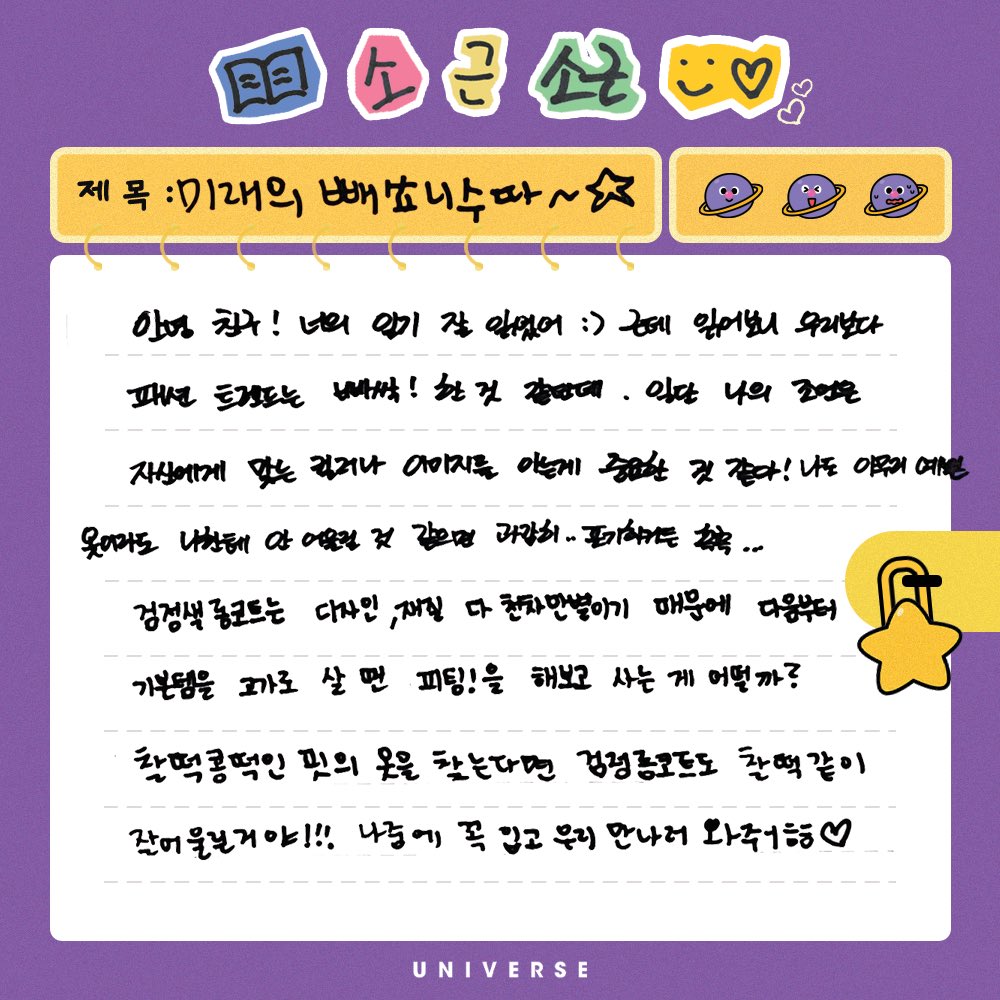 소 근 소근
제 목 : 미래의 빼쑈니수따~☆
안녕 친구! 너의 일기 잘 읽었어 :) 근데 읽어보니 우리보다
패션 트렌드는 빠싹! 한 것 같던데 . 일단 나의 조언은
자신에게 맞는 컬러나 이미지를 아는게 중요한 것 같다! 나도 아무리 예쁜
옷이라도 나한테 안 어울릴 것 같으면 과감히.. 포기하거든 ...
검정색 롱코트는 디자인, 재질 다 천차만별이기 때문에 다음부터
기본템을 고가로 살 땐 피팅!을 해보고 사는 게 어떨까?
찰떡콩떡인 핏의 옷을 찾는다면 검정롱코트도 찰떡같이
잘어울릴거야!!! 나중에 꼭 입고 우리 만나러 와주어 ㅎㅎ♡
UNIVERSE